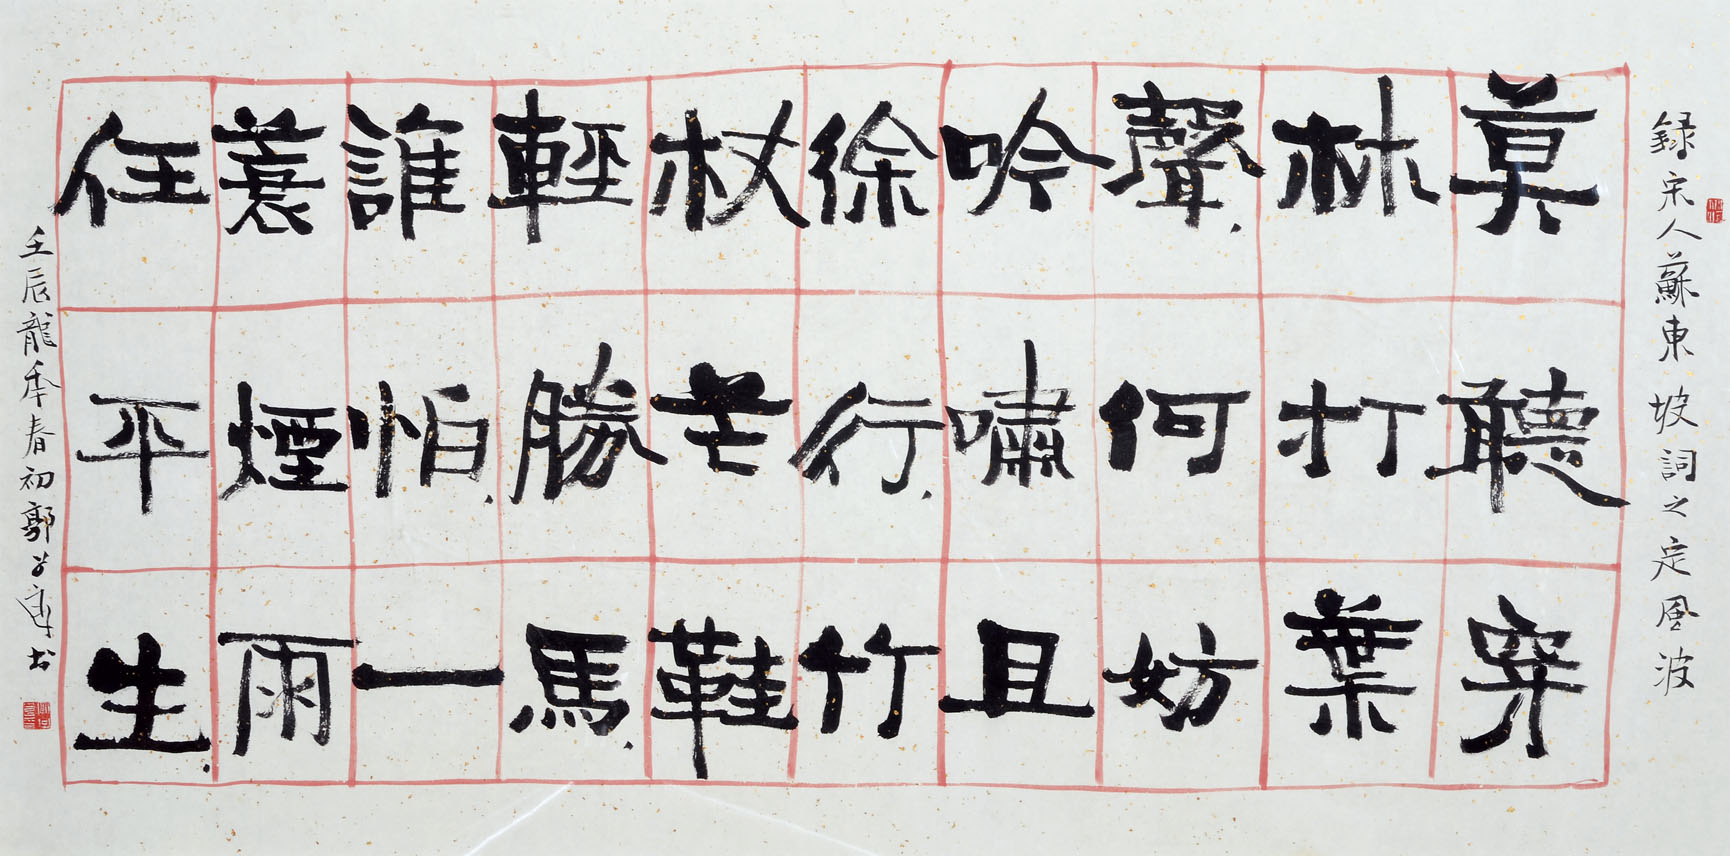 録宋人蘇東坡詞之定風波
莫聽穿
林打葉
聲何妨
吟嘯且
徐行竹
杖芒鞋
輕勝馬
誰怕一
蓑煙雨
任平生
壬辰龍年春初郭 書